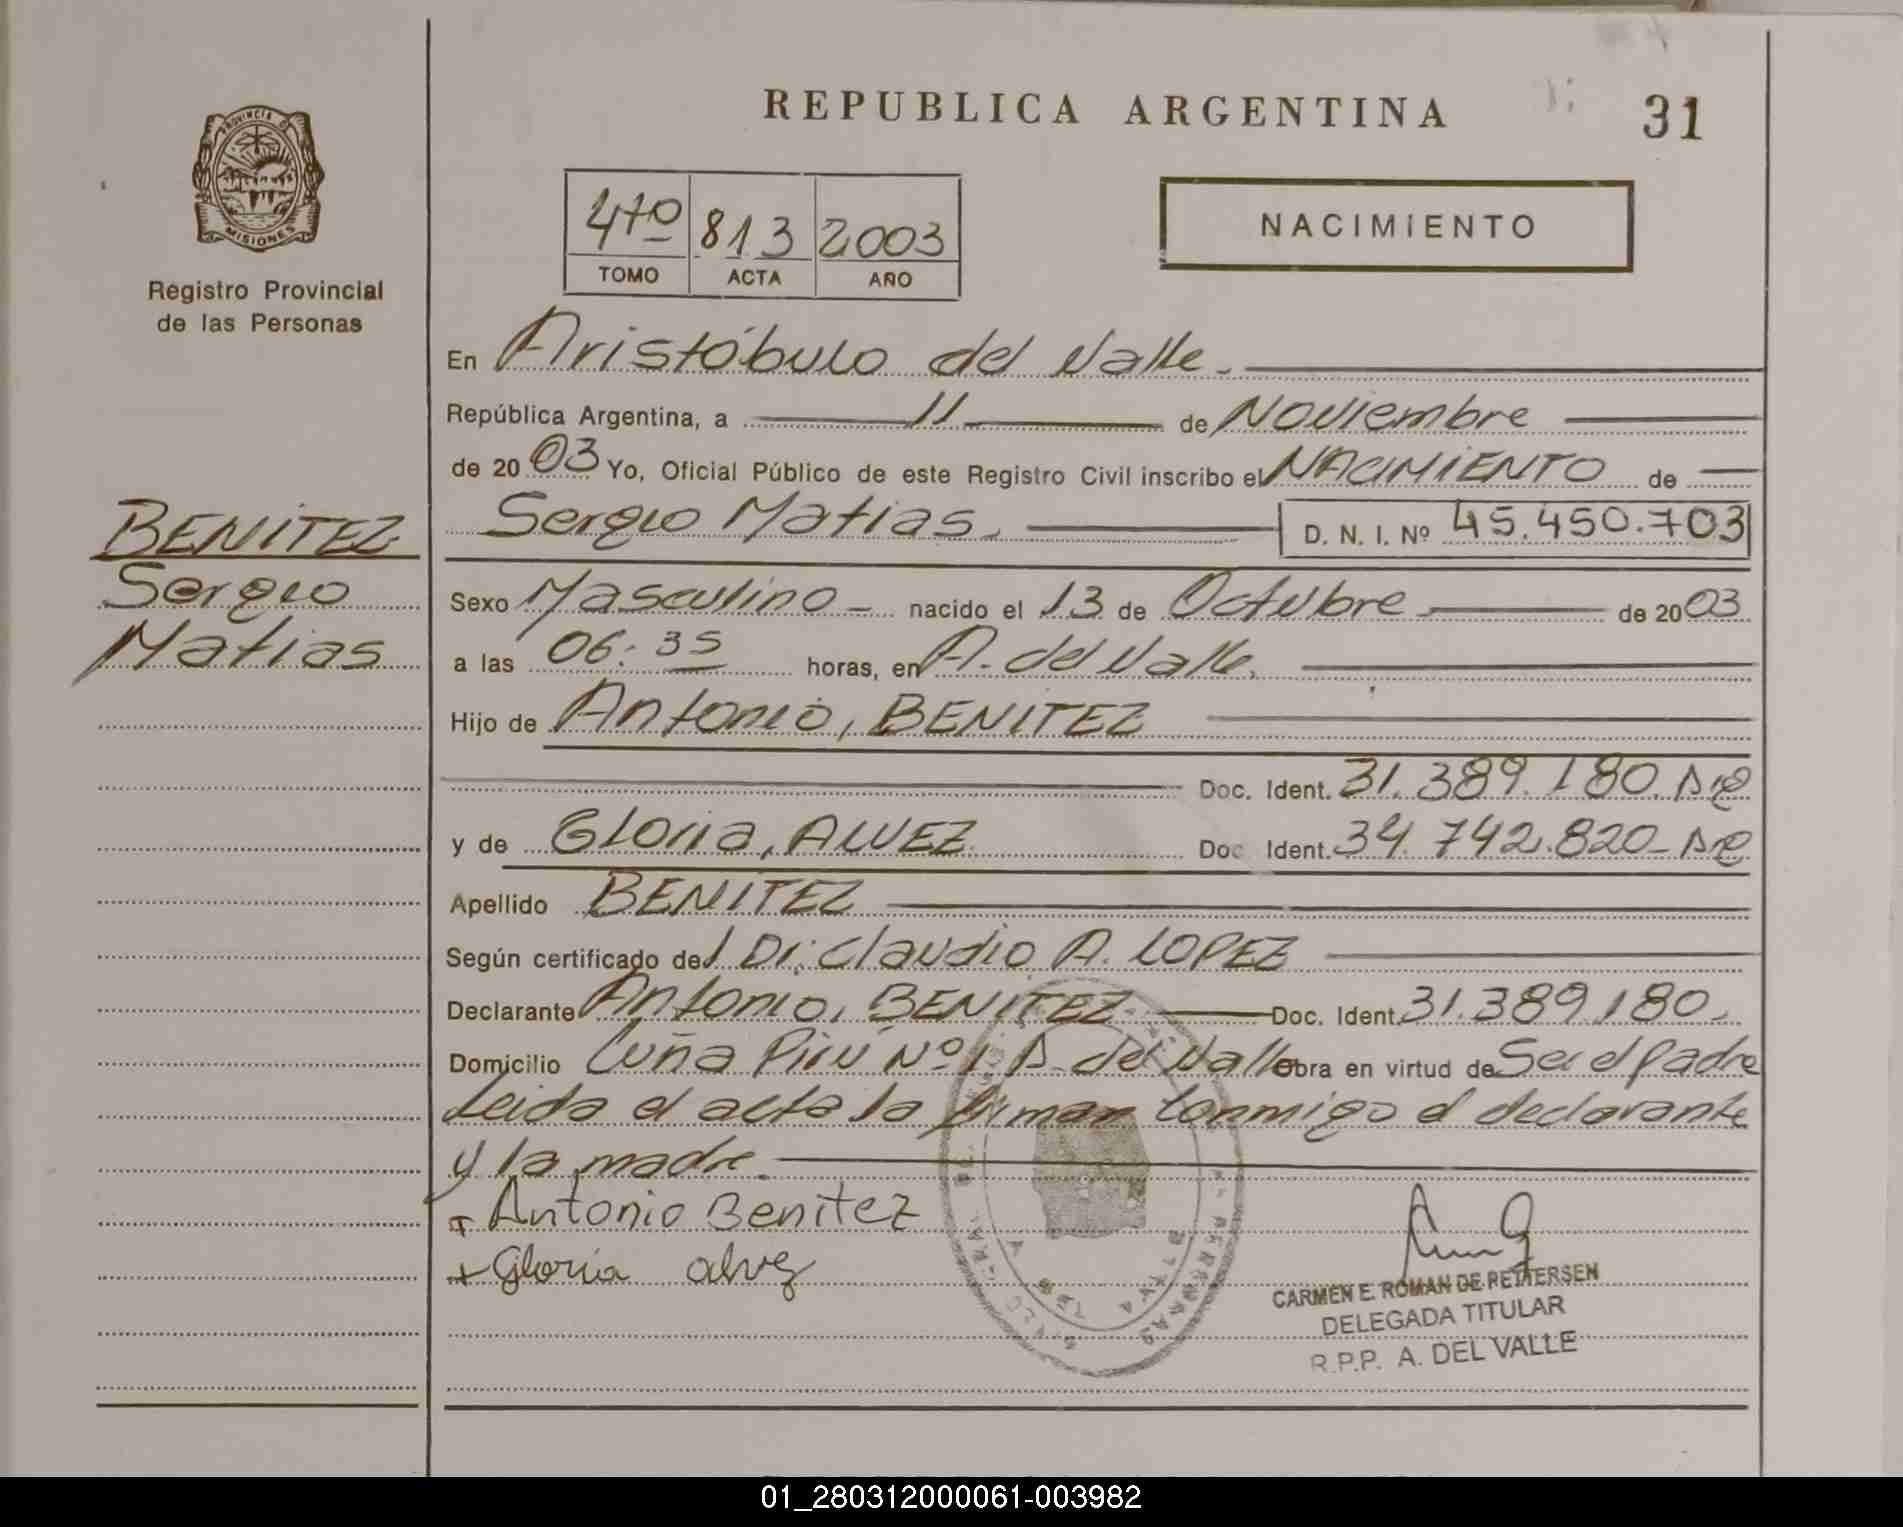 REPUBLICA ARGENTINA
31
PROVINCIA D
MISIONES
Registro Provincial
de las Personas
4to 813 2003
TOMO ACTA AÑO
NACIMIENTO
En Aristóbulo del Valle.
República Argentina, a 11 de Noviembre
de 2003 Yo, Oficial Público de este Registro Civil inscribo el NACIMIENTO de
Sergio Matias. D. N. I. Nº 45.450.703
BENITEZ
Sergio
Matias
Sexo Masculino nacido el 13 de Octubre de 2003
a las 06:35 horas, en A. del Valle.
Hijo de Antonio, BENITEZ
Doc. Ident. 31.389.180
y de Gloria, ALVEZ Doc Ident. 34.742.820
Apellido BENITEZ
Según certificado del Dr. Claudio A. LOPEZ
Declarante Antonio, BENITEZ Doc. Ident. 31.389.180.
Domicilio Cuña Pirú Nº 1 A. del Valle Obra en virtud de Ser el Padre
Leida el acta la firman conmigo el declarante
y la madre.
Antonio Benitez
Gloria alvez
CARMEN E. ROMAN DE PETTERSEN
DELEGADA TITULAR
R.P.P. A. DEL VALLE
01_280312000061-003982